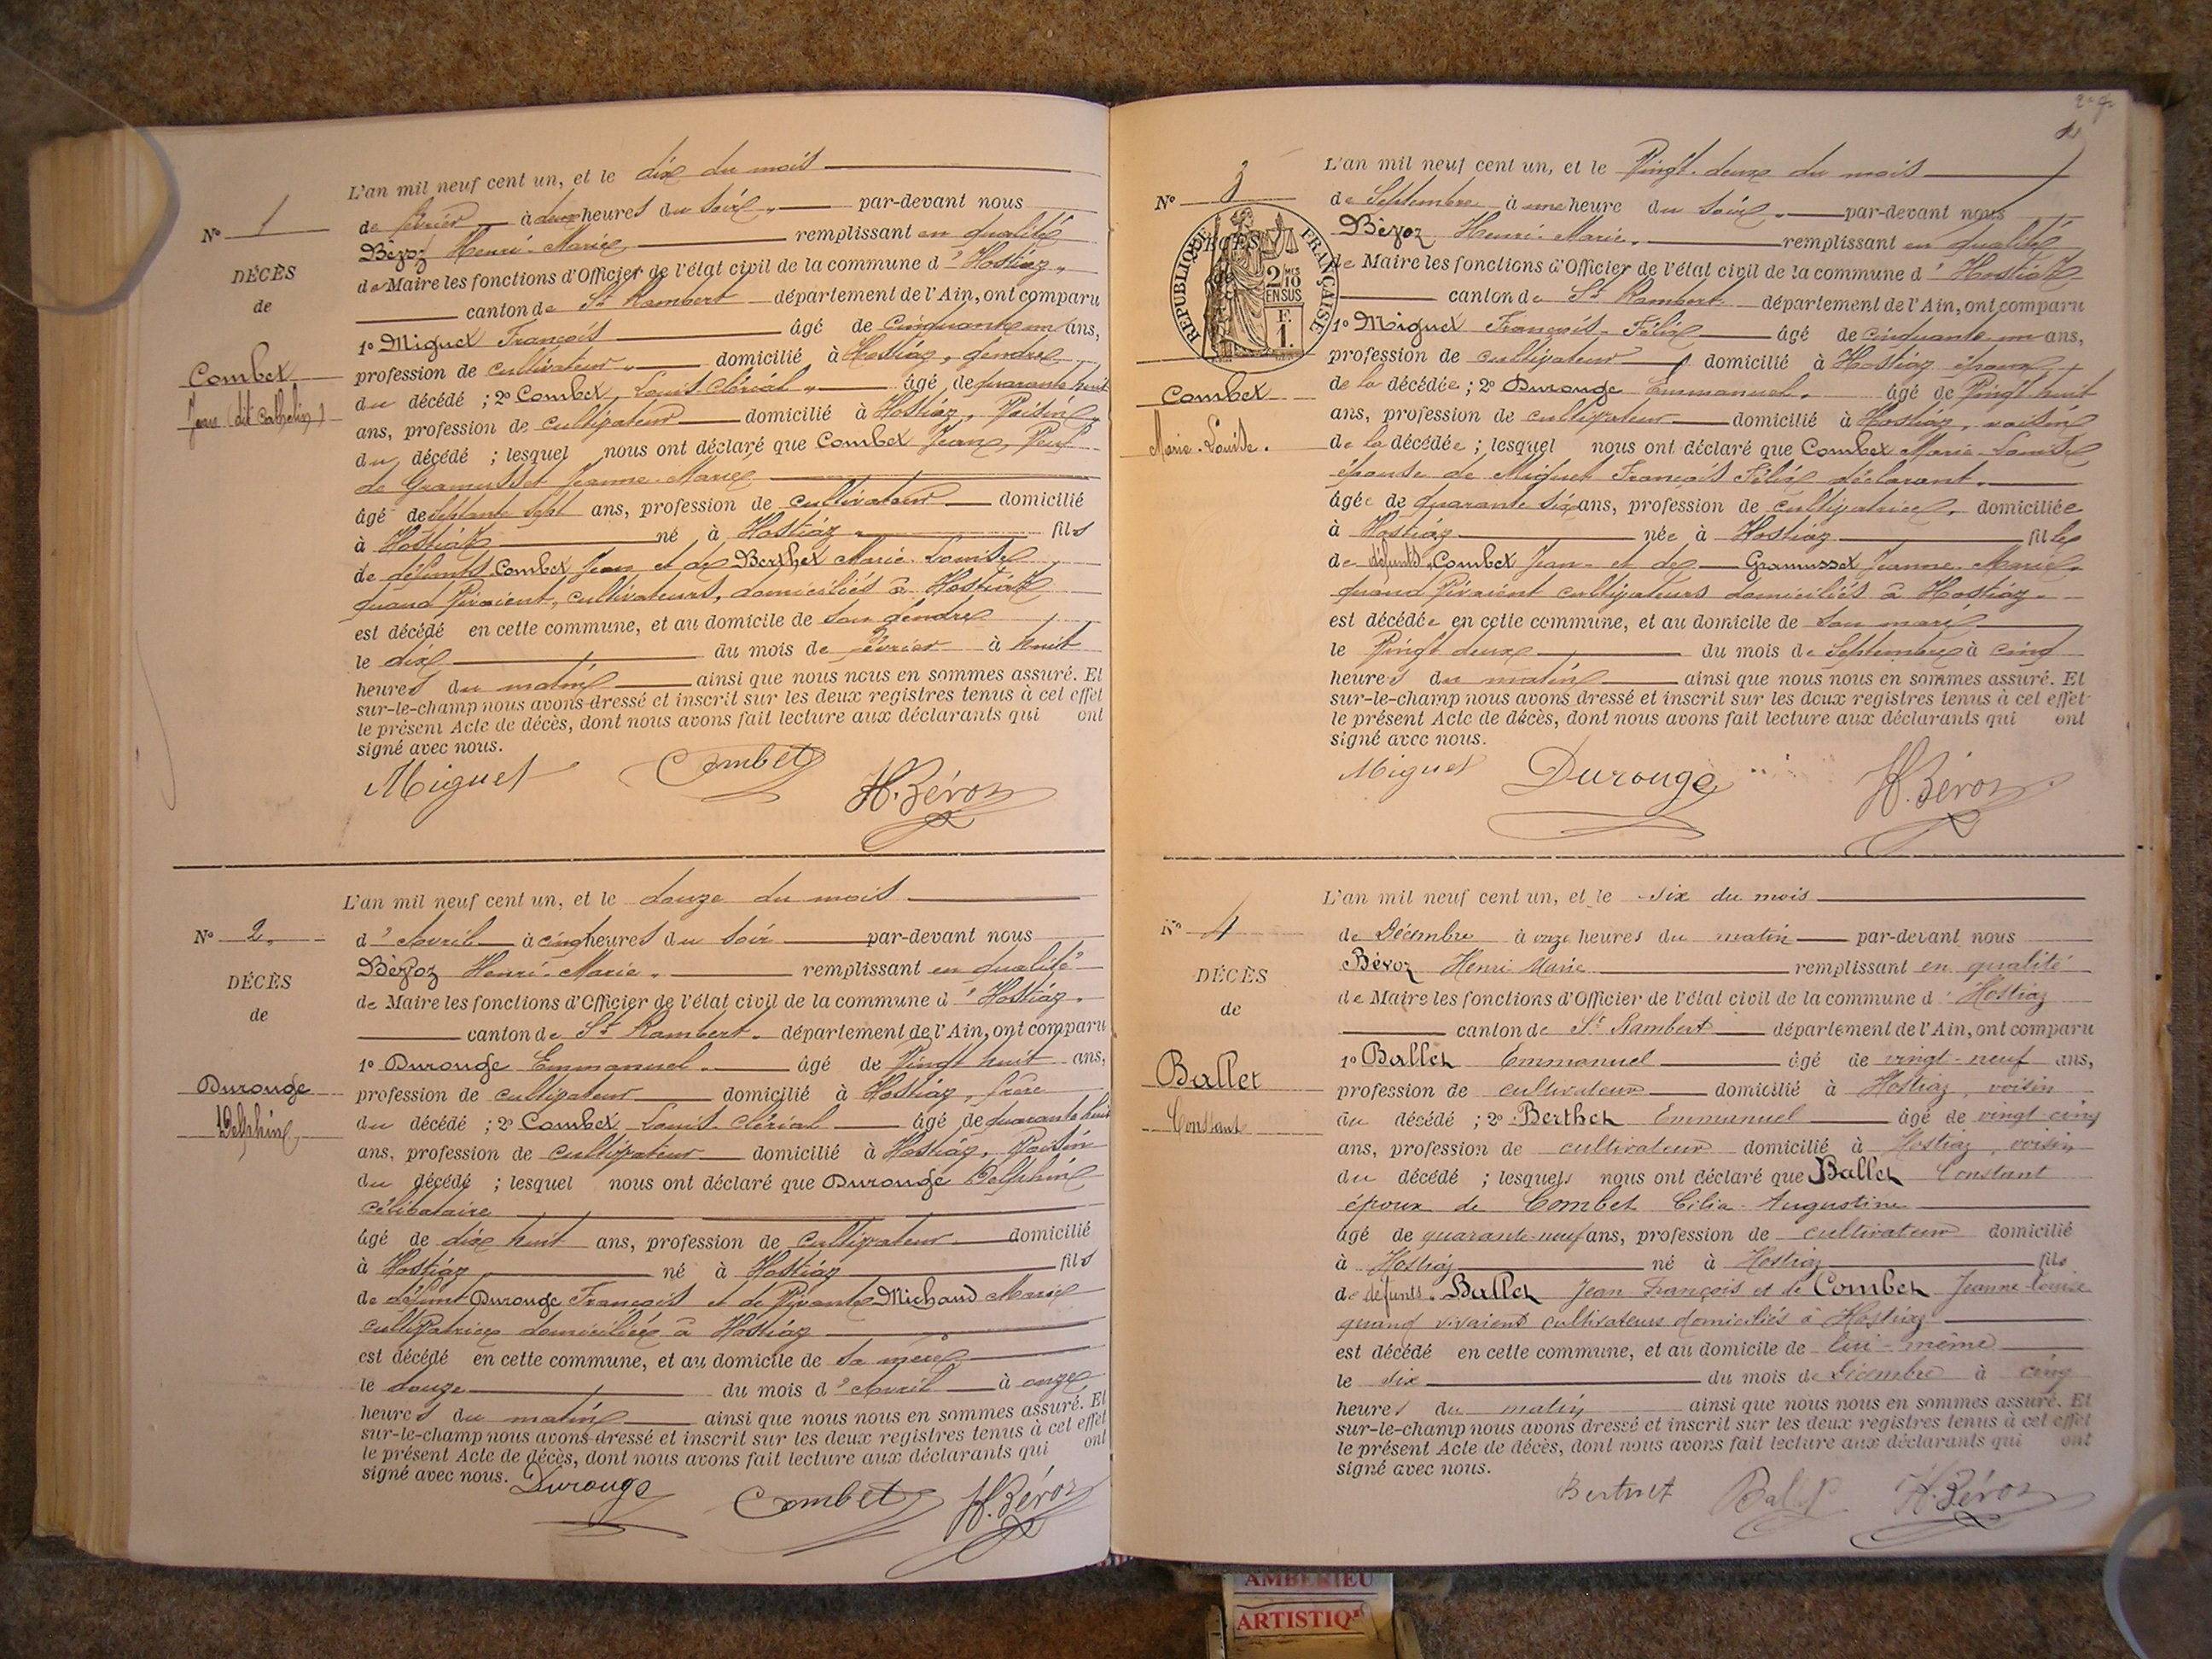 L'an mil neuf cent un, et le dix du mois
N° 1
de février à deux heures du soir par-devant nous
Bévoz Henri-Marie remplissant en qualité
DÉCÈS
de Maire les fonctions d'Officier de l'état civil de la commune d'Hostiaz
de
canton de St Rambert département de l'Ain, ont comparu
1° Miguet François âgé de cinquante un ans,
Combet
Jean (dit Cathelin)
profession de cultivateur domicilié à Hostiaz, gendre
du décédé ; 2° Combet, Louis Clérial âgé de quarante huit
ans, profession de cultivateur domicilié à Hostiaz, Voisin
du décédé ; lesquel nous ont déclaré que Combet Jean, Veuf
de Gramusset Jeanne-Marie
âgé de septante sept ans, profession de cultivateur domicilié
à Hostiaz né à Hostiaz fils
de défunts Combet Jean et de Berthet Marie-Louise
quand vivaient, cultivateurs, domiciliés à Hostiaz
est décédé en cette commune, et au domicile de son gendre
le dix du mois de février à huit
heures du matin ainsi que nous nous en sommes assuré. Et
sur-le-champ nous avons dressé et inscrit sur les deux registres tenus à cet effet
le présent Acte de décès, dont nous avons fait lecture aux déclarants qui ont
signé avec nous.
Miguet Combet H. Bévoz
L'an mil neuf cent un, et le douze du mois
N° 2.
d'Avril à cinq heures du soir par-devant nous
Bévoz Henri-Marie. remplissant en qualité
DÉCÈS
de Maire les fonctions d'Officier de l'état civil de la commune d'Hostiaz.
de
canton de St Rambert. département de l'Ain, ont comparu
1° Durouge Emmanuel. âgé de Vingt huit ans,
Durouge
Delphin
profession de cultivateur domicilié à Hostiaz, frère
du décédé ; 2° Combet Louis-Clérial âgé de quarante huit
ans, profession de cultivateur domicilié à Hostiaz, Voisin
du décédé ; lesquel nous ont déclaré que Durouge Delphin
célibataire
âgé de dix huit ans, profession de cultivateur domicilié
à Hostiaz né à Hostiaz fils
de défunt Durouge François et de Vivante Michaud Marie
cultivatrice domiciliée à Hostiaz
est décédé en cette commune, et au domicile de sa mère
le douze du mois d'Avril à onze
heures du matin ainsi que nous nous en sommes assuré. Et
sur-le-champ nous avons dressé et inscrit sur les deux registres tenus à cet effet
le présent Acte de décès, dont nous avons fait lecture aux déclarants qui ont
signé avec nous.
Durouge Combet H. Bévoz
L'an mil neuf cent un, et le Vingt-deux du mois
N° 3
de Septembre à une heure du soir. par-devant nous
Bévoz Henri-Marie. remplissant en qualité
DÉCÈS
RÉPUBLIQUE FRANÇAISE
2/10 EN SUS
F. 1.
de Maire les fonctions d'Officier de l'état civil de la commune d'Hostiaz
canton de St Rambert département de l'Ain, ont comparu
1° Miguet François-Félix âgé de cinquante un ans,
profession de cultivateur domicilié à Hostiaz époux
Combet
Marie-Louise.
de la décédée ; 2° Durouge Emmanuel. âgé de Vingt huit
ans, profession de cultivateur domicilié à Hostiaz, voisin
de la décédée ; lesquel nous ont déclaré que Combet Marie-Louise
épouse de Miguet François Félix déclarant.
âgée de quarante six ans, profession de cultivatrice. domiciliée
à Hostiaz née à Hostiaz fille
de défunts Combet Jean et de Gramusset Jeanne-Marie.
quand vivaient cultivateurs domiciliés à Hostiaz
est décédée en cette commune, et au domicile de son mari
le Vingt deux du mois de Septembre à cinq
heures du matin ainsi que nous nous en sommes assuré. Et
sur-le-champ nous avons dressé et inscrit sur les deux registres tenus à cet effet
le présent Acte de décès, dont nous avons fait lecture aux déclarants qui ont
signé avec nous.
Miguet Durouge H. Bévoz
L'an mil neuf cent un, et le six du mois
N° 4
de Décembre à onze heures du matin par-devant nous
Bévoz Henri Marie remplissant en qualité
DÉCÈS
de Maire les fonctions d'Officier de l'état civil de la commune d'Hostiaz
de
canton de St Rambert département de l'Ain, ont comparu
1° Ballet Emmanuel âgé de vingt-neuf ans,
Ballet
Constant
profession de cultivateur domicilié à Hostiaz, voisin
du décédé ; 2° Berthet Emmanuel âgé de vingt cinq
ans, profession de cultivateur domicilié à Hostiaz, voisin
du décédé ; lesquels nous ont déclaré que Ballet Constant
époux de Combet Cilia Augustine
âgé de quarante-neuf ans, profession de cultivateur domicilié
à Hostiaz né à Hostiaz fils
de défunts. Ballet Jean François et de Combet Jeanne-Louise
quand vivaient cultivateurs domiciliés à Hostiaz
est décédé en cette commune, et au domicile de lui-même
le six du mois de Décembre à cinq
heures du matin ainsi que nous nous en sommes assuré. Et
sur-le-champ nous avons dressé et inscrit sur les deux registres tenus à cet effet
le présent Acte de décès, dont nous avons fait lecture aux déclarants qui ont
signé avec nous.
Berthet Ballet H. Bévoz
AMBERIEU
ARTISTIQ